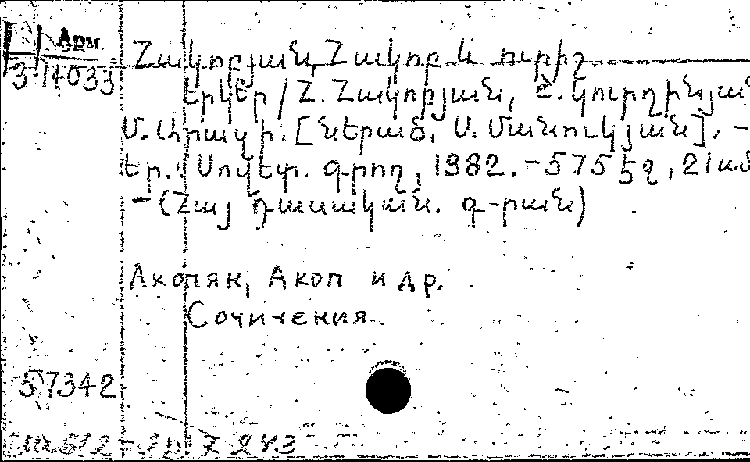 Арм.
3-14033
Հակոբյան, Հակոբ և ուրիշ
երկեր / Հ. Հակոբյան, Շ. Կուրղինյան
Մ. Արազի. [Ներած. Ս. Մանուկյան]. –
Եր.: Սովետ. գրող, 1982. – 575 էջ, 21 սմ
– (Հայ դասական. գ-րան)
Акопян, Акоп и др.
Сочинения.
57342